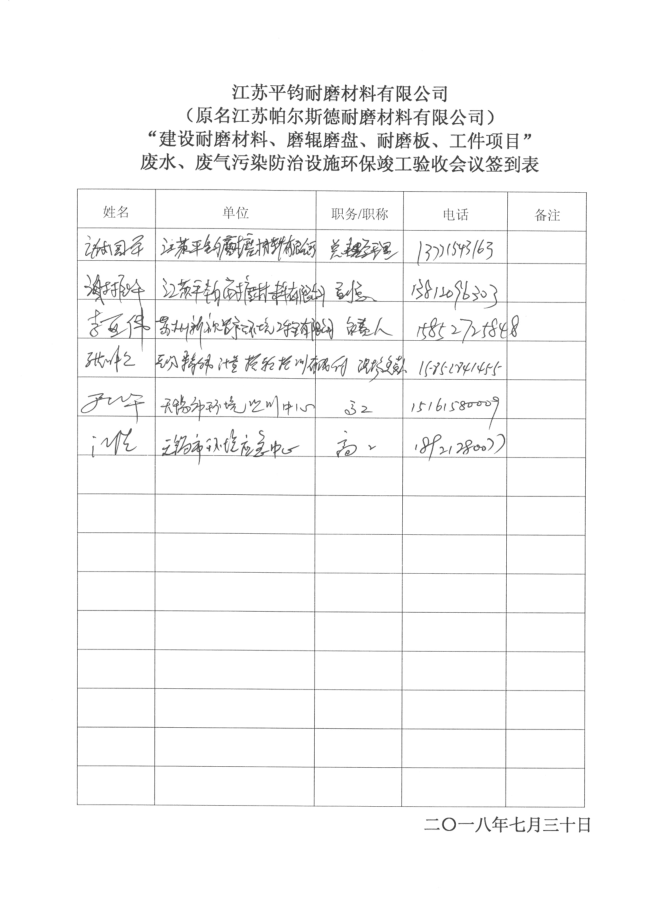 江苏平钧耐磨材料有限公司
（原名江苏帕尔斯德耐磨材料有限公司）
“建设耐磨材料、磨辊磨盘、耐磨板、工件项目”
废水、废气污染防治设施环保竣工验收会议签到表
姓名 单位 职务/职称 电话 备注
江苏平钧耐磨材料有限公司 总经理 13771543163
江苏平钧耐磨材料有限公司 13812096303
李亚伟 有限公司 负责人 15852725848
检验检测有限公司 15852841455
无锡市环境监测中心 高工 15161580009
无锡市环境应急中心 高工 18921280077
二〇一八年七月三十日